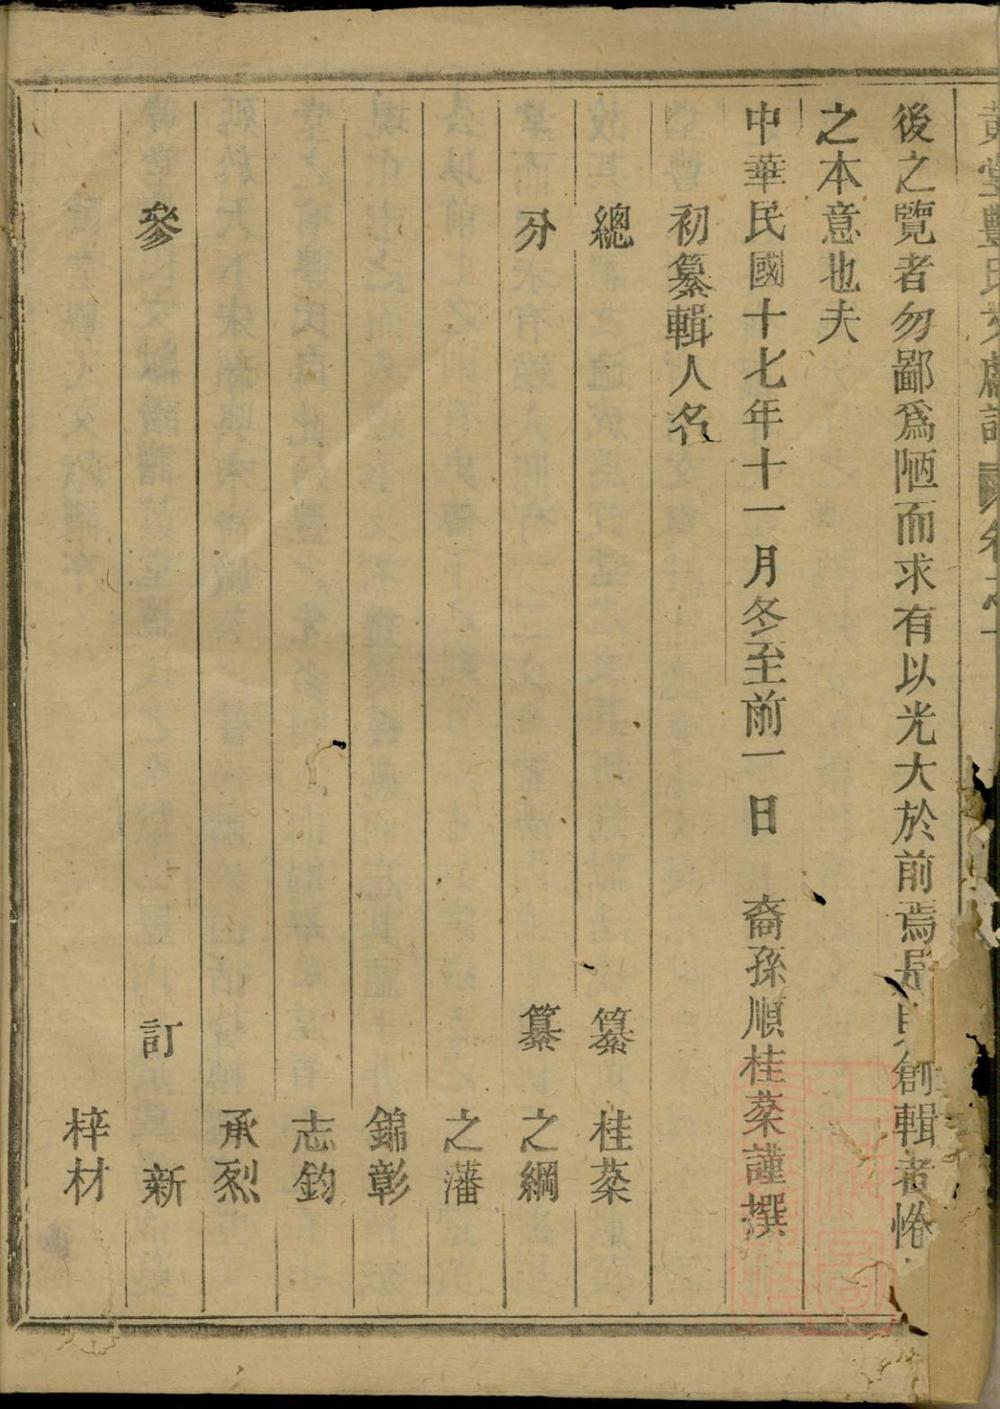 黄堂豐氏
後之覽者勿鄙爲陋而求有以光大於前焉是則創輯者惓
之本意也夫
中華民國十七年十一月冬至前一日 裔孫順桂棻謹撰
初纂輯人名
總 纂 桂棻
分 纂 之綱
之藩
錦彰
志鈞
承烈
參 訂 新
梓材